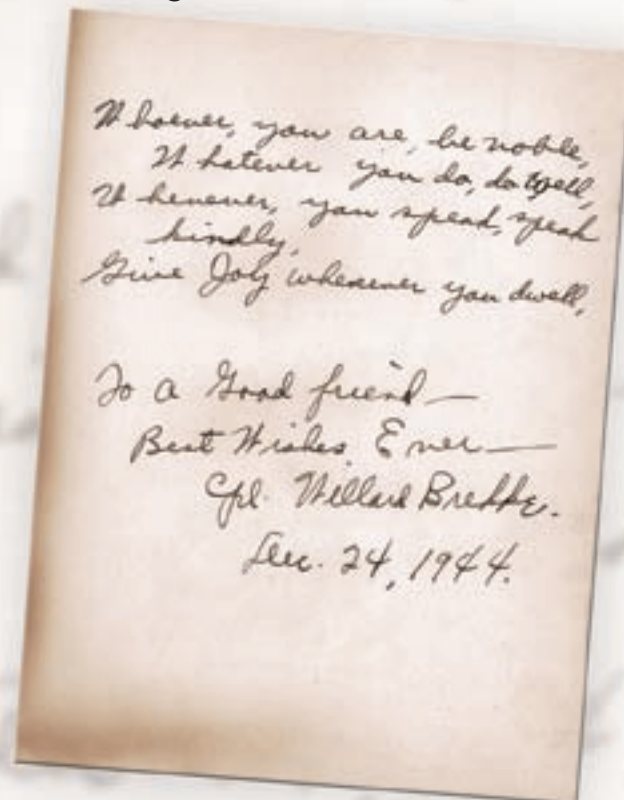 Whoever, you are, be noble,
Whatever you do, do well,
Whenever, you speak, speak
kindly,
Give Joy wherever you dwell,
To a Good friend—
Best Wishes Ever—
Cpl. Willard
Dec. 24, 1944.